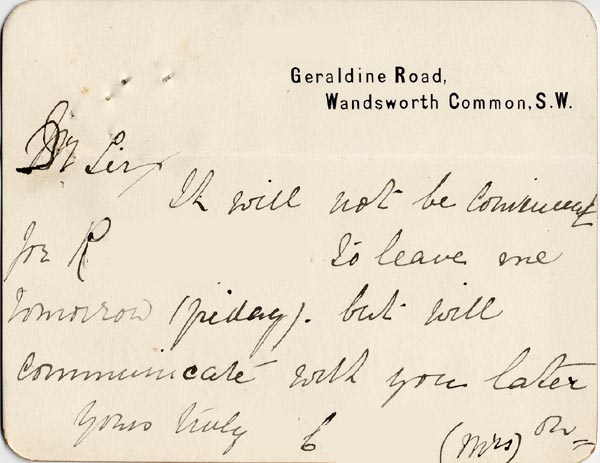 Geraldine Road,
Wandsworth Common, S.W.
Dr Sir,
It will not be convenient
for R to leave me
tomorrow (friday). but will
communicate with you later
on
yours truly E (Mrs)